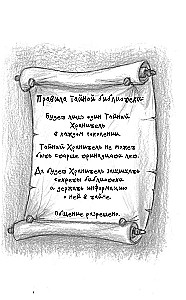 Правила Тайной библиотеки
Будет лишь один Тайный
Хранитель
в каждом поколении.
Тайный Хранитель не может
быть старше тринадцати лет.
Да будет Хранитель защищать
секреты библиотеки
и держать информацию
о ней в тайне.
Общение разрешено.